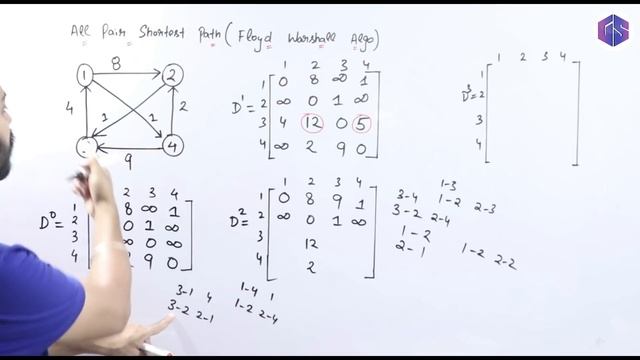 All Pair Shortest Path ( Floyd Warshall Algo)
1 8 2
4 1 1 2
9 4
D¹=
1 2 3 4
1 0 8 ∞ 1
2 ∞ 0 1 ∞
3 4 12 0 5
4 ∞ 2 9 0
D³=
1 2 3 4
1
2
3
4
D⁰=
2 3 4
1 8 ∞ 1
2 0 1 ∞
3 ∞ 0 ∞
4 2 9 0
D²=
1 2 3 4
1 0 8 9 1
2 ∞ 0 1 ∞
3 12
4 2
1-3
3-4 1-2 2-3
3-2 2-4
1-2
2-1 1-2 2-2
3-1 4 1-4 1
3-2 2-1 1-2 2-4